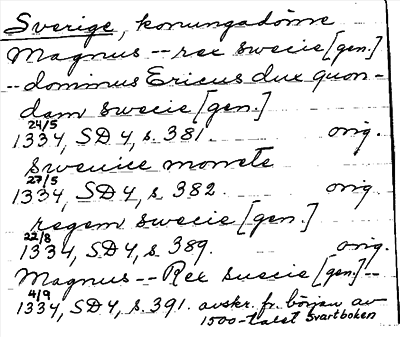 Sverige, konungadöme
Magnus -- rex swecie [gen.]
-- dominus Ericus dux quon-
dam swecie [gen.]
24/5
1334, SD 4, s. 381. orig.
Swenice monete
27/5
1334, SD 4, s. 382. orig.
regem swecie [gen.]
22/8
1334, SD 4, s. 389. orig.
Magnus -- Rex suecie [gen.] --
4/9
1334, SD 4, s. 391. avskr. fr. början av
1500-talet Svartboken